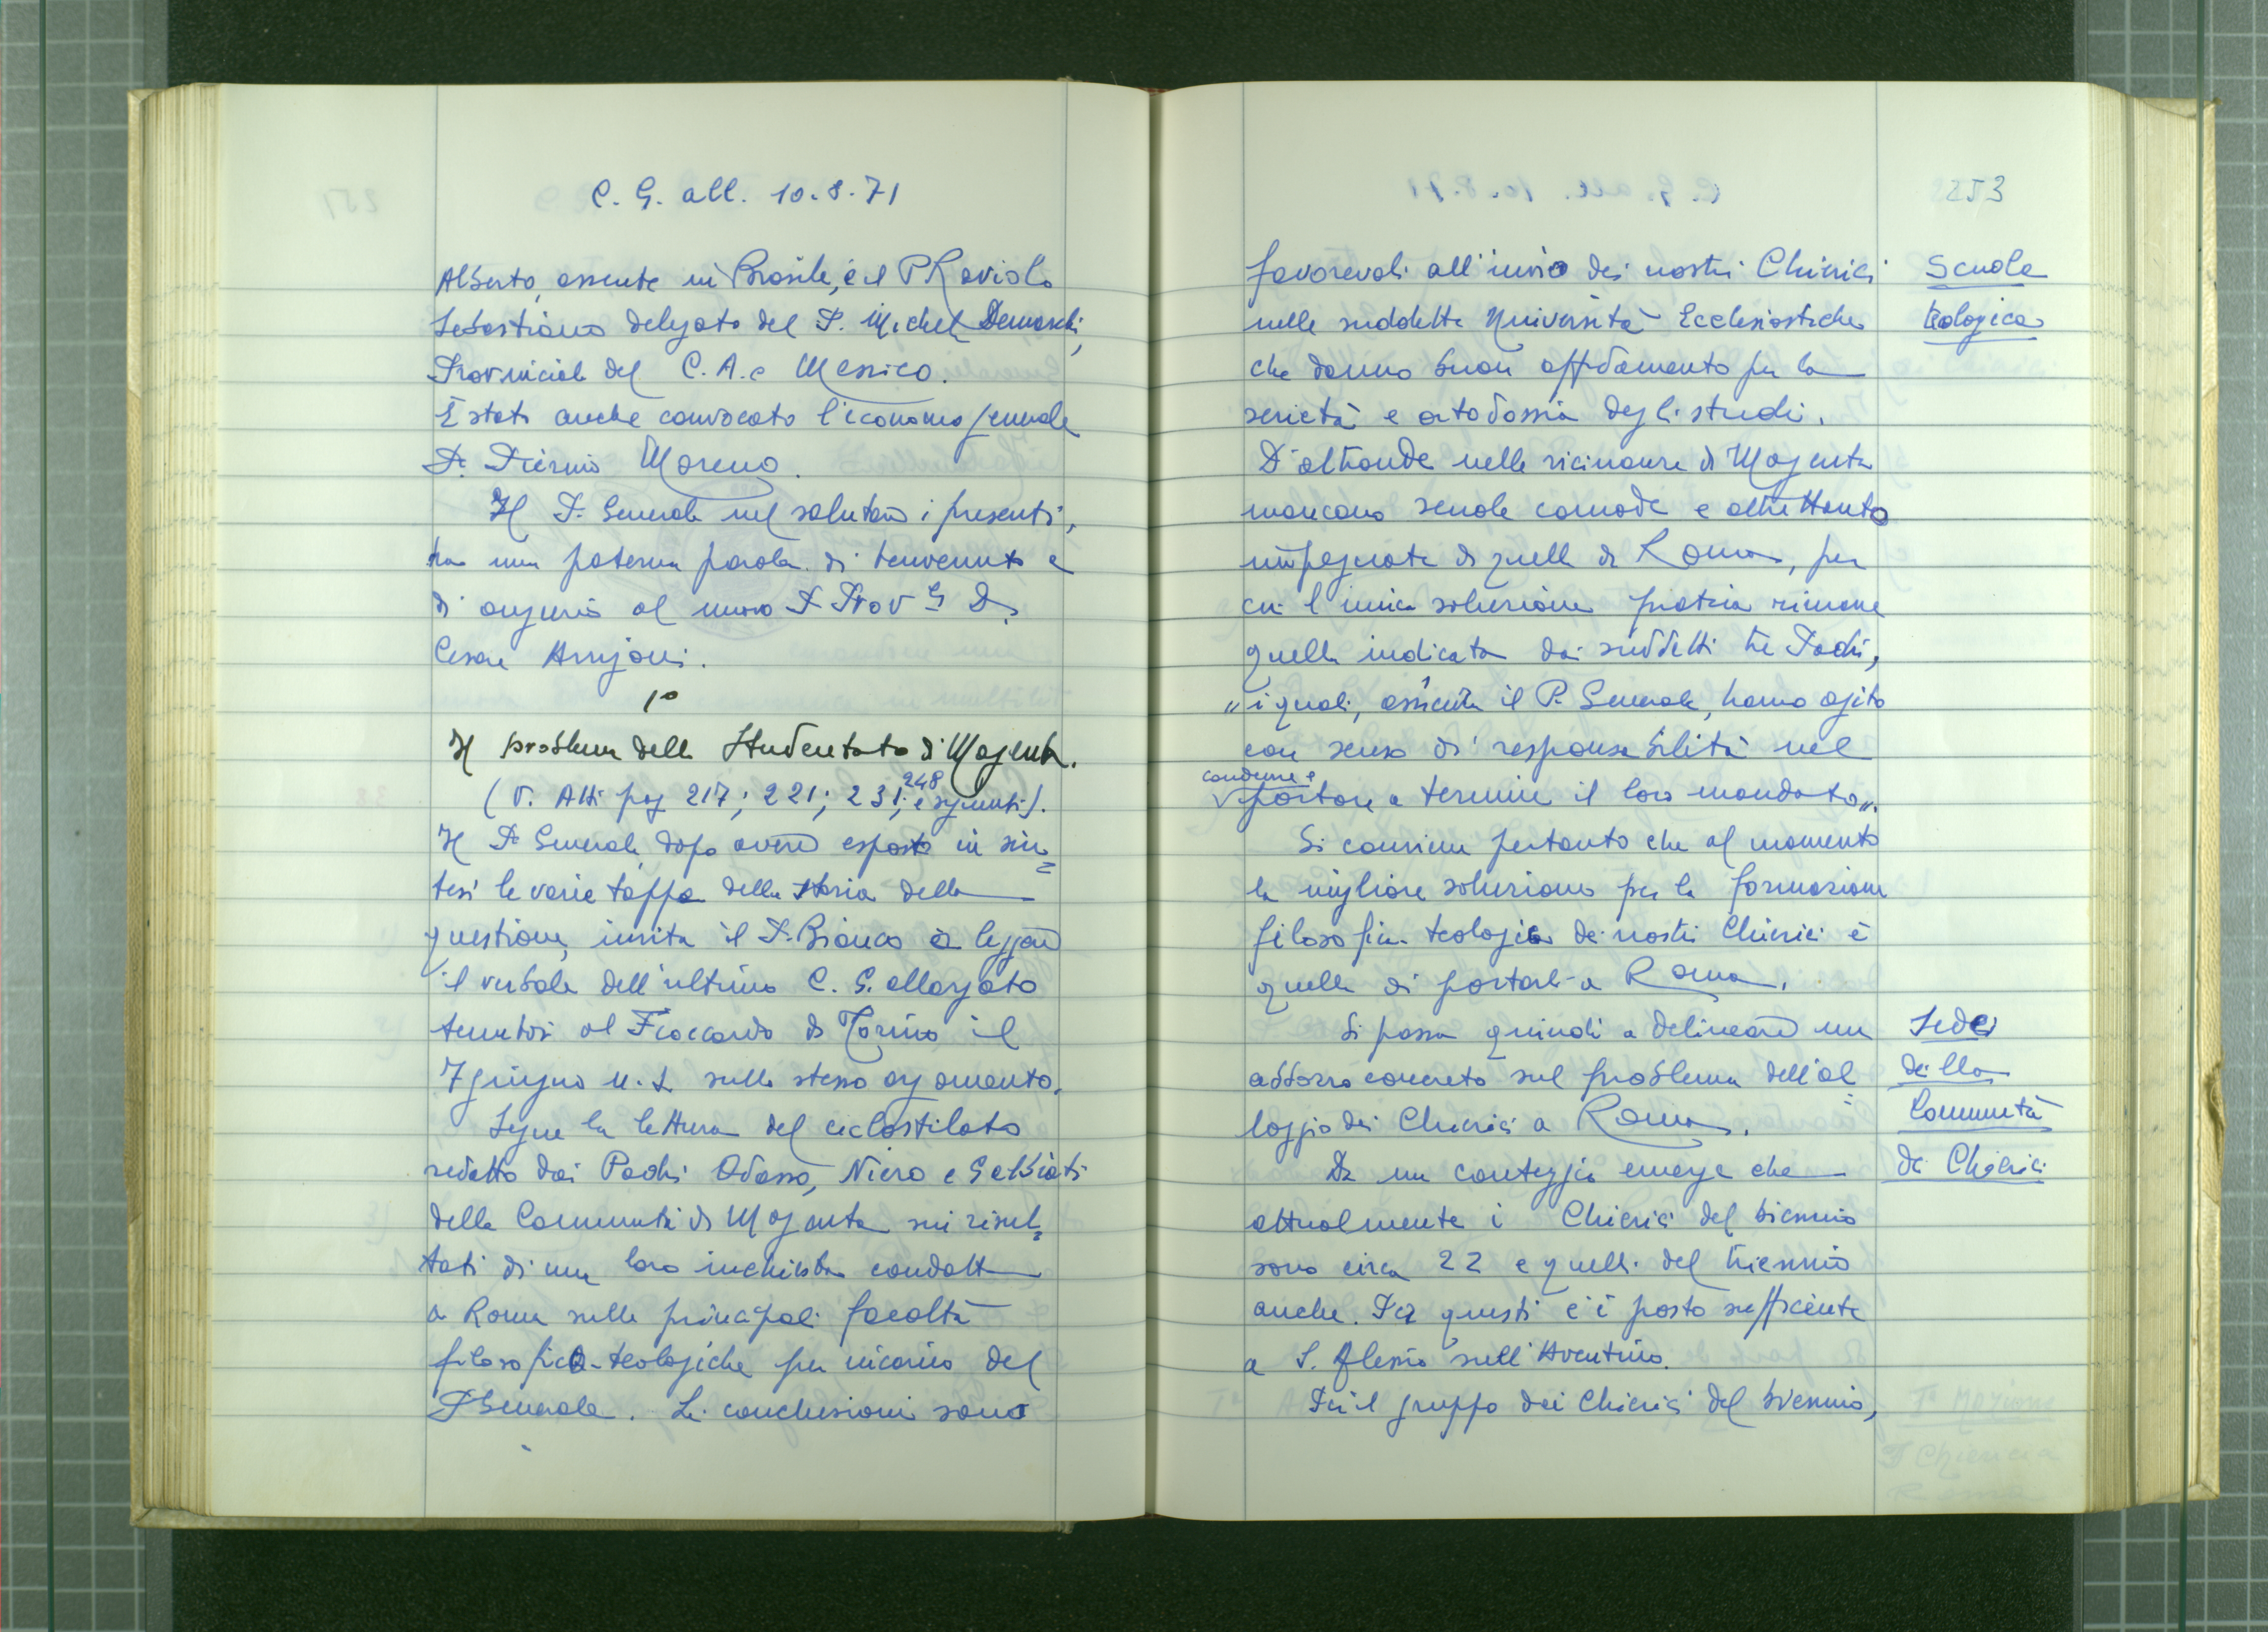 C. G. all. 10.8.71
Alberto, assente in Brasile, è il P Raviolo
Sebastiano delegato del P. Michele Demarchi,
Provinciale del C.A. e Messico.
È stato anche convocato l'economo generale
P. Pierino Moreno.
Il P. Generale nel salutare i presenti,
ha una paterna parola di benvenuto e
di augurio al nuovo P Prov
Cesare Arrigoni.
1°
Il problema dello Studentato di Magenta.
(V. Atti pag 217; 221; 231; 248 e seguenti).
Il P. Generale, dopo avere esposto in sin=
tesi le varie tappe della storia della
questione, invita il P. Bianco a leggere
il verbale dell'ultimo C. G. allargato
tenutosi al Fioccardo di Torino il
7 giugno u.s. sullo stesso argomento.
Segue la lettura del ciclostilato
redatto dai Padri Odasso, Niero e Gabbiati
della Comunità di Magenta sui risul=
tati di una loro inchiesta condotta
a Roma sulle principali facoltà
filosofico-teologiche per incarico del
P Generale. Le conclusioni sono
253
favorevoli all'invio dei nostri Chierici
nelle suddette Università Ecclesiastiche
che danno buon affidamento per la
serietà e ortodossia degli studi.
D'altronde nelle vicinanze di Magenta
mancano scuole comode e altrettanto
impegnate di quelle di Roma, per
cui l'unica soluzione pratica rimane
quella indicata dai suddetti tre Padri,
"i quali, assicura il P. Generale, hanno agito
con senso di responsabilità nel
condurre e
portare a termine il loro mandato".
Si conviene pertanto che al momento
la migliore soluzione per la formazione
filosofico-teologica dei nostri Chierici è
quella di portarli a Roma.
Si passa quindi a delineare un
abbozzo concreto sul problema dell'al=
loggio dei Chierici a Roma.
Da un conteggio emerge che
attualmente i Chierici del biennio
sono circa 22 e quelli del triennio
anche. Per questi c'è posto sufficiente
a S. Alessio sull'Aventino.
Per il gruppo dei Chierici del biennio,
Scuola
teologica
Sede
della
Comunità
dei Chierici